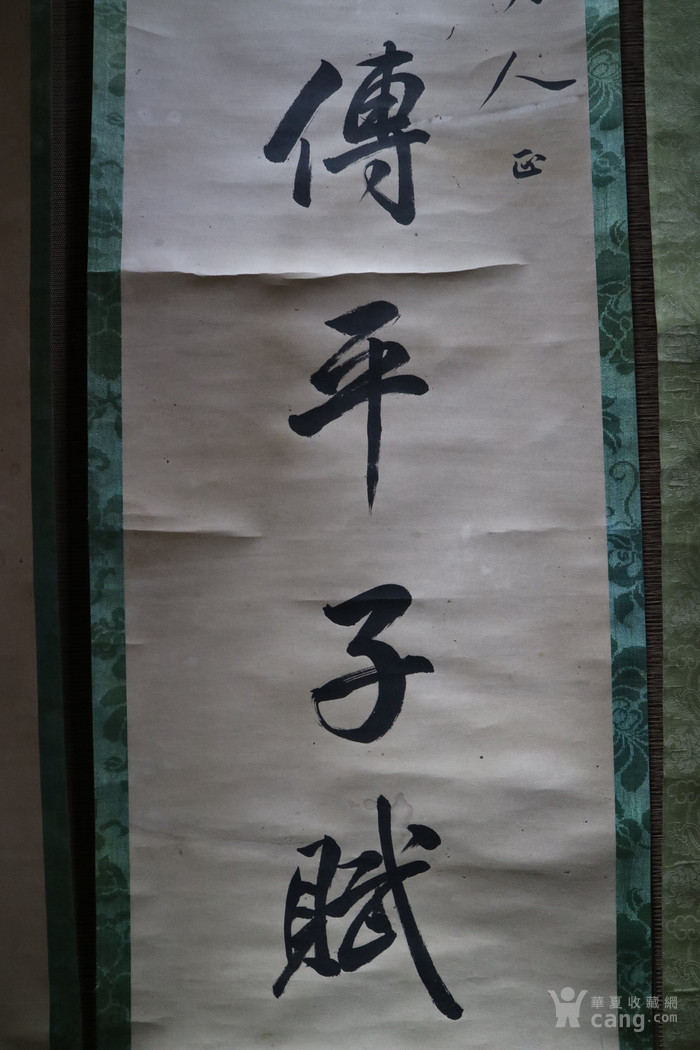 人正
傳平子賦
華夏收藏網
cang.com